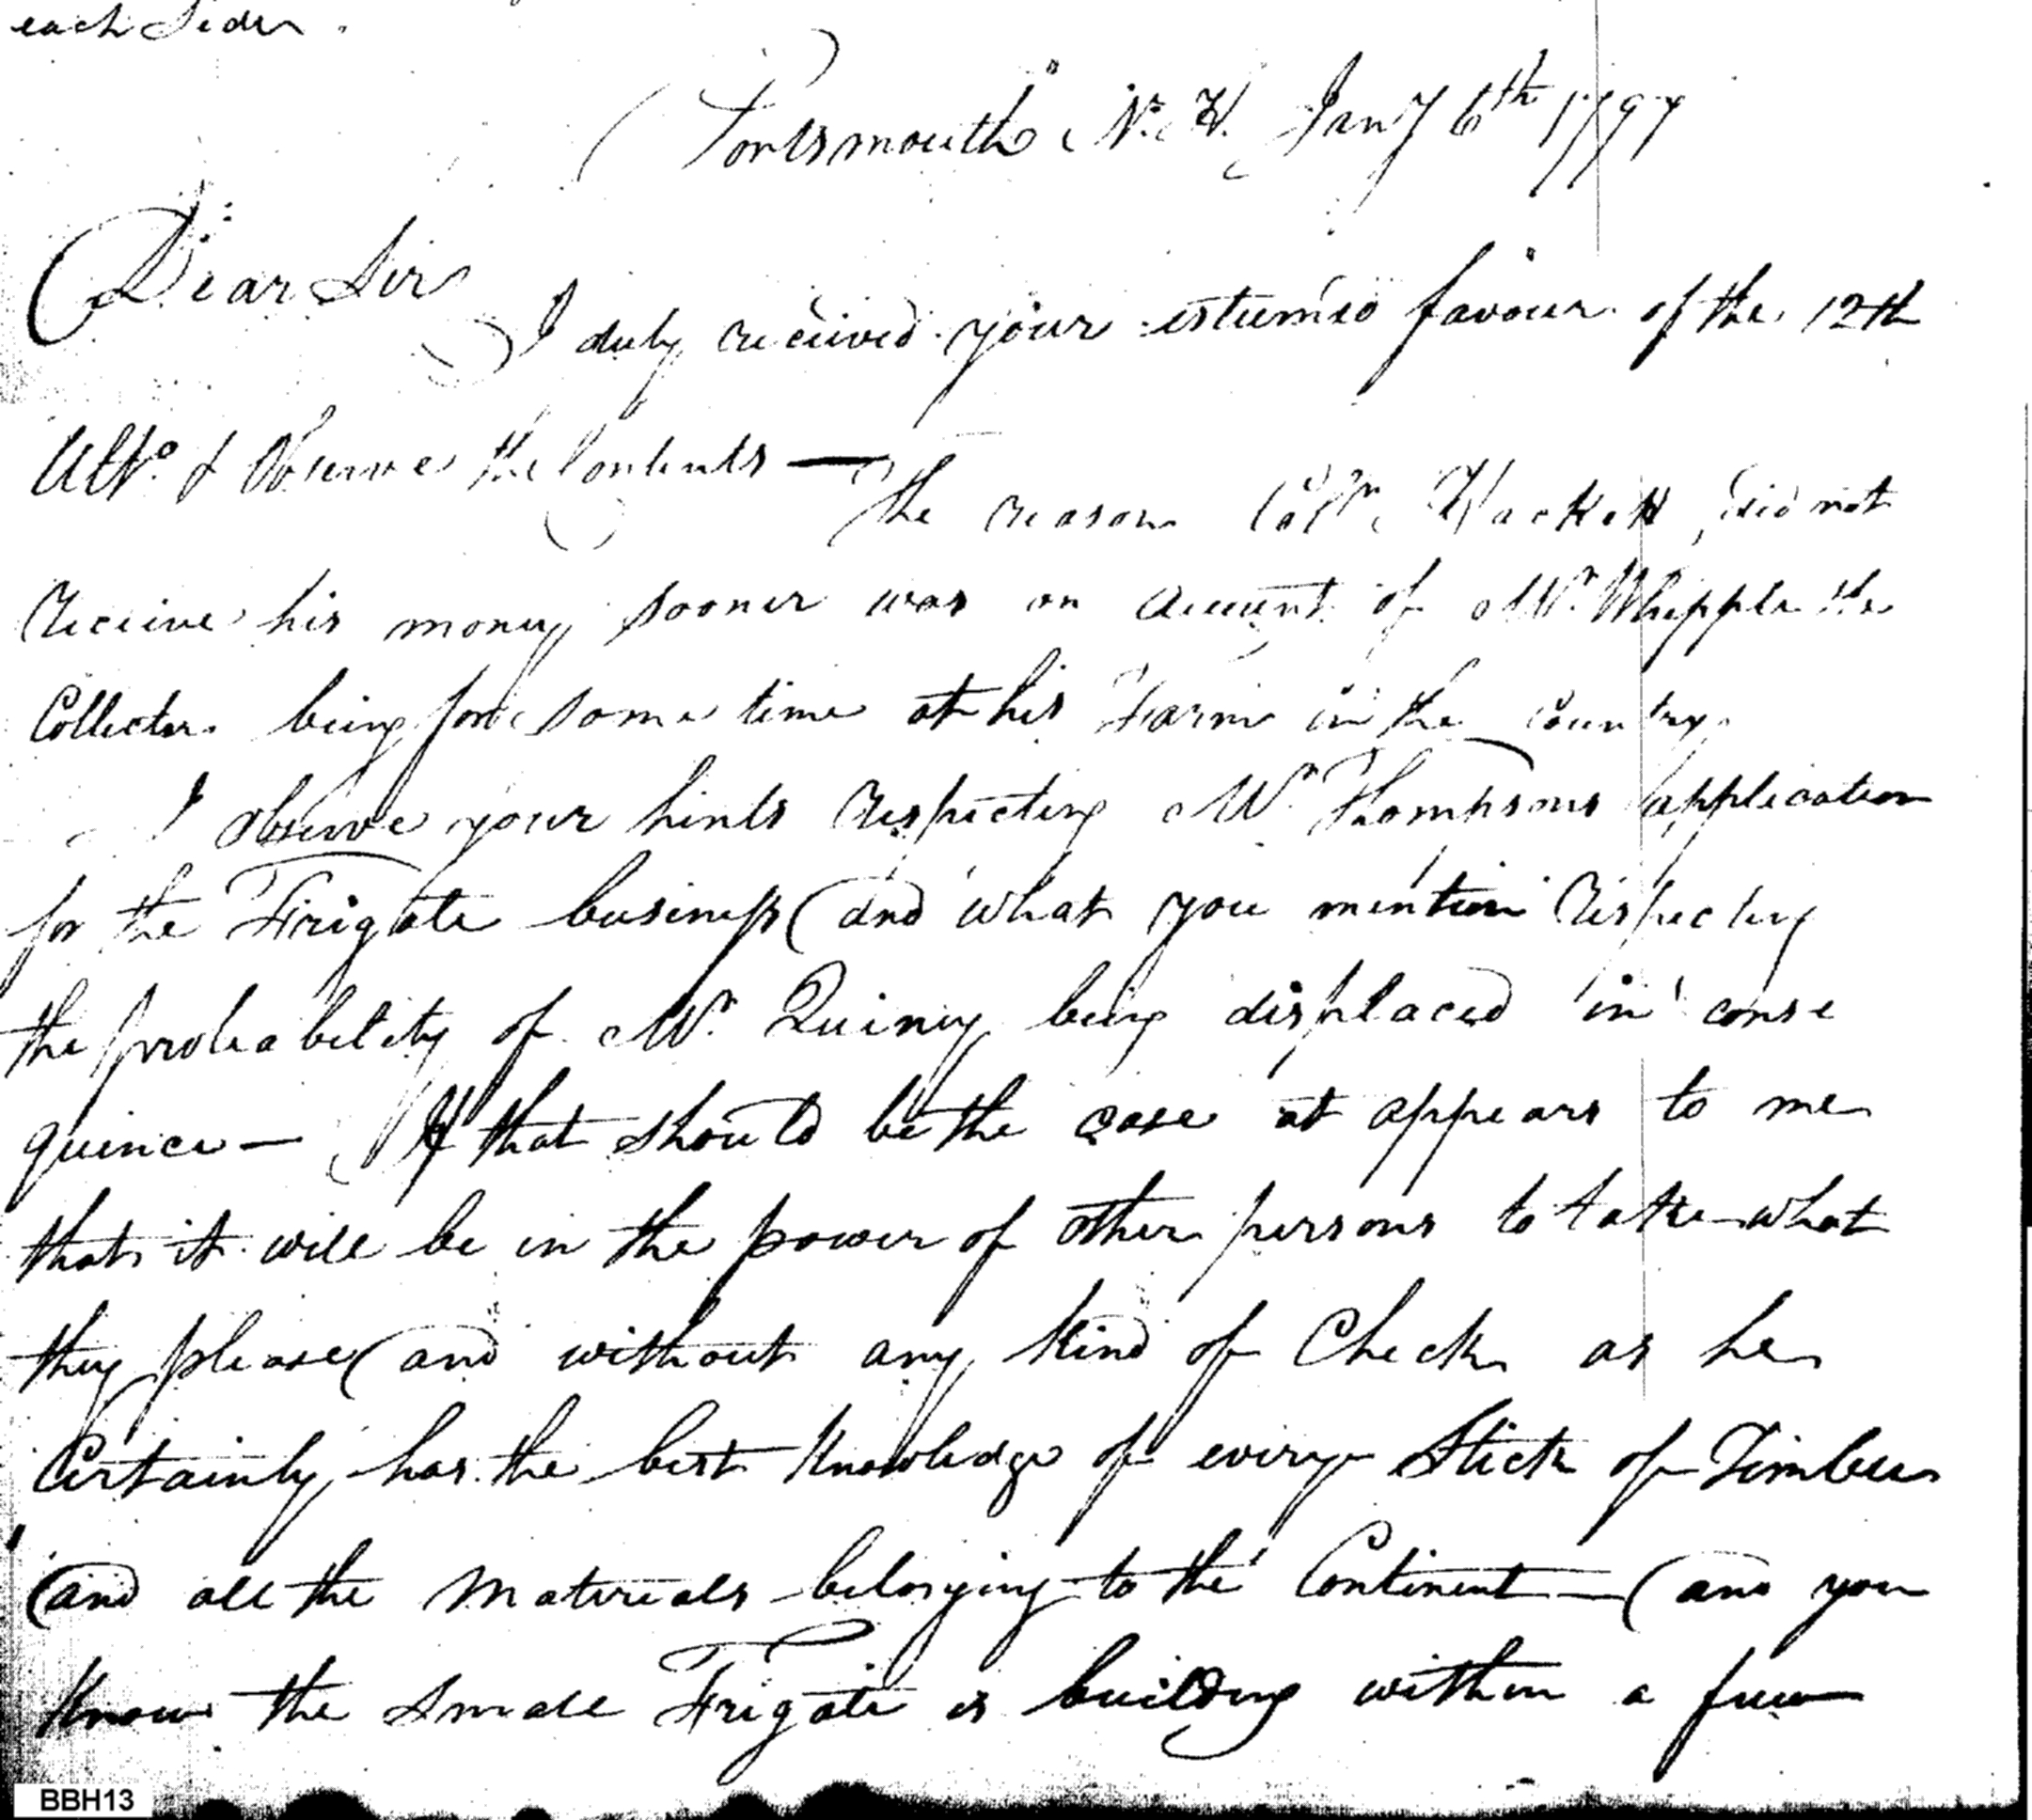 each Side
Portsmouth N. H. Jany 6th 1797
Dear Sir
I duly received your esteem'd favour of the 12th
Ulto. & Observe the Contents — The reason Coln. Hackett did not
receive his money sooner was on account of Mr. Whipple the
Collector being for some time at his Farm in the Country
I observe your hints respecting Mr. Thompsons application
for the Frigate business and what you mention respecting
the probability of Mr. Quincy being displaced in conse
quince — If that should be the case at appears to me
that it will be in the power of other persons to take what
they please and without any kind of Check as he
Certainly has the best Knowledge of every Stick of Timber
and all the Materials belonging to the Continent — and you
Know the Small Frigate is building within a few
BBH13